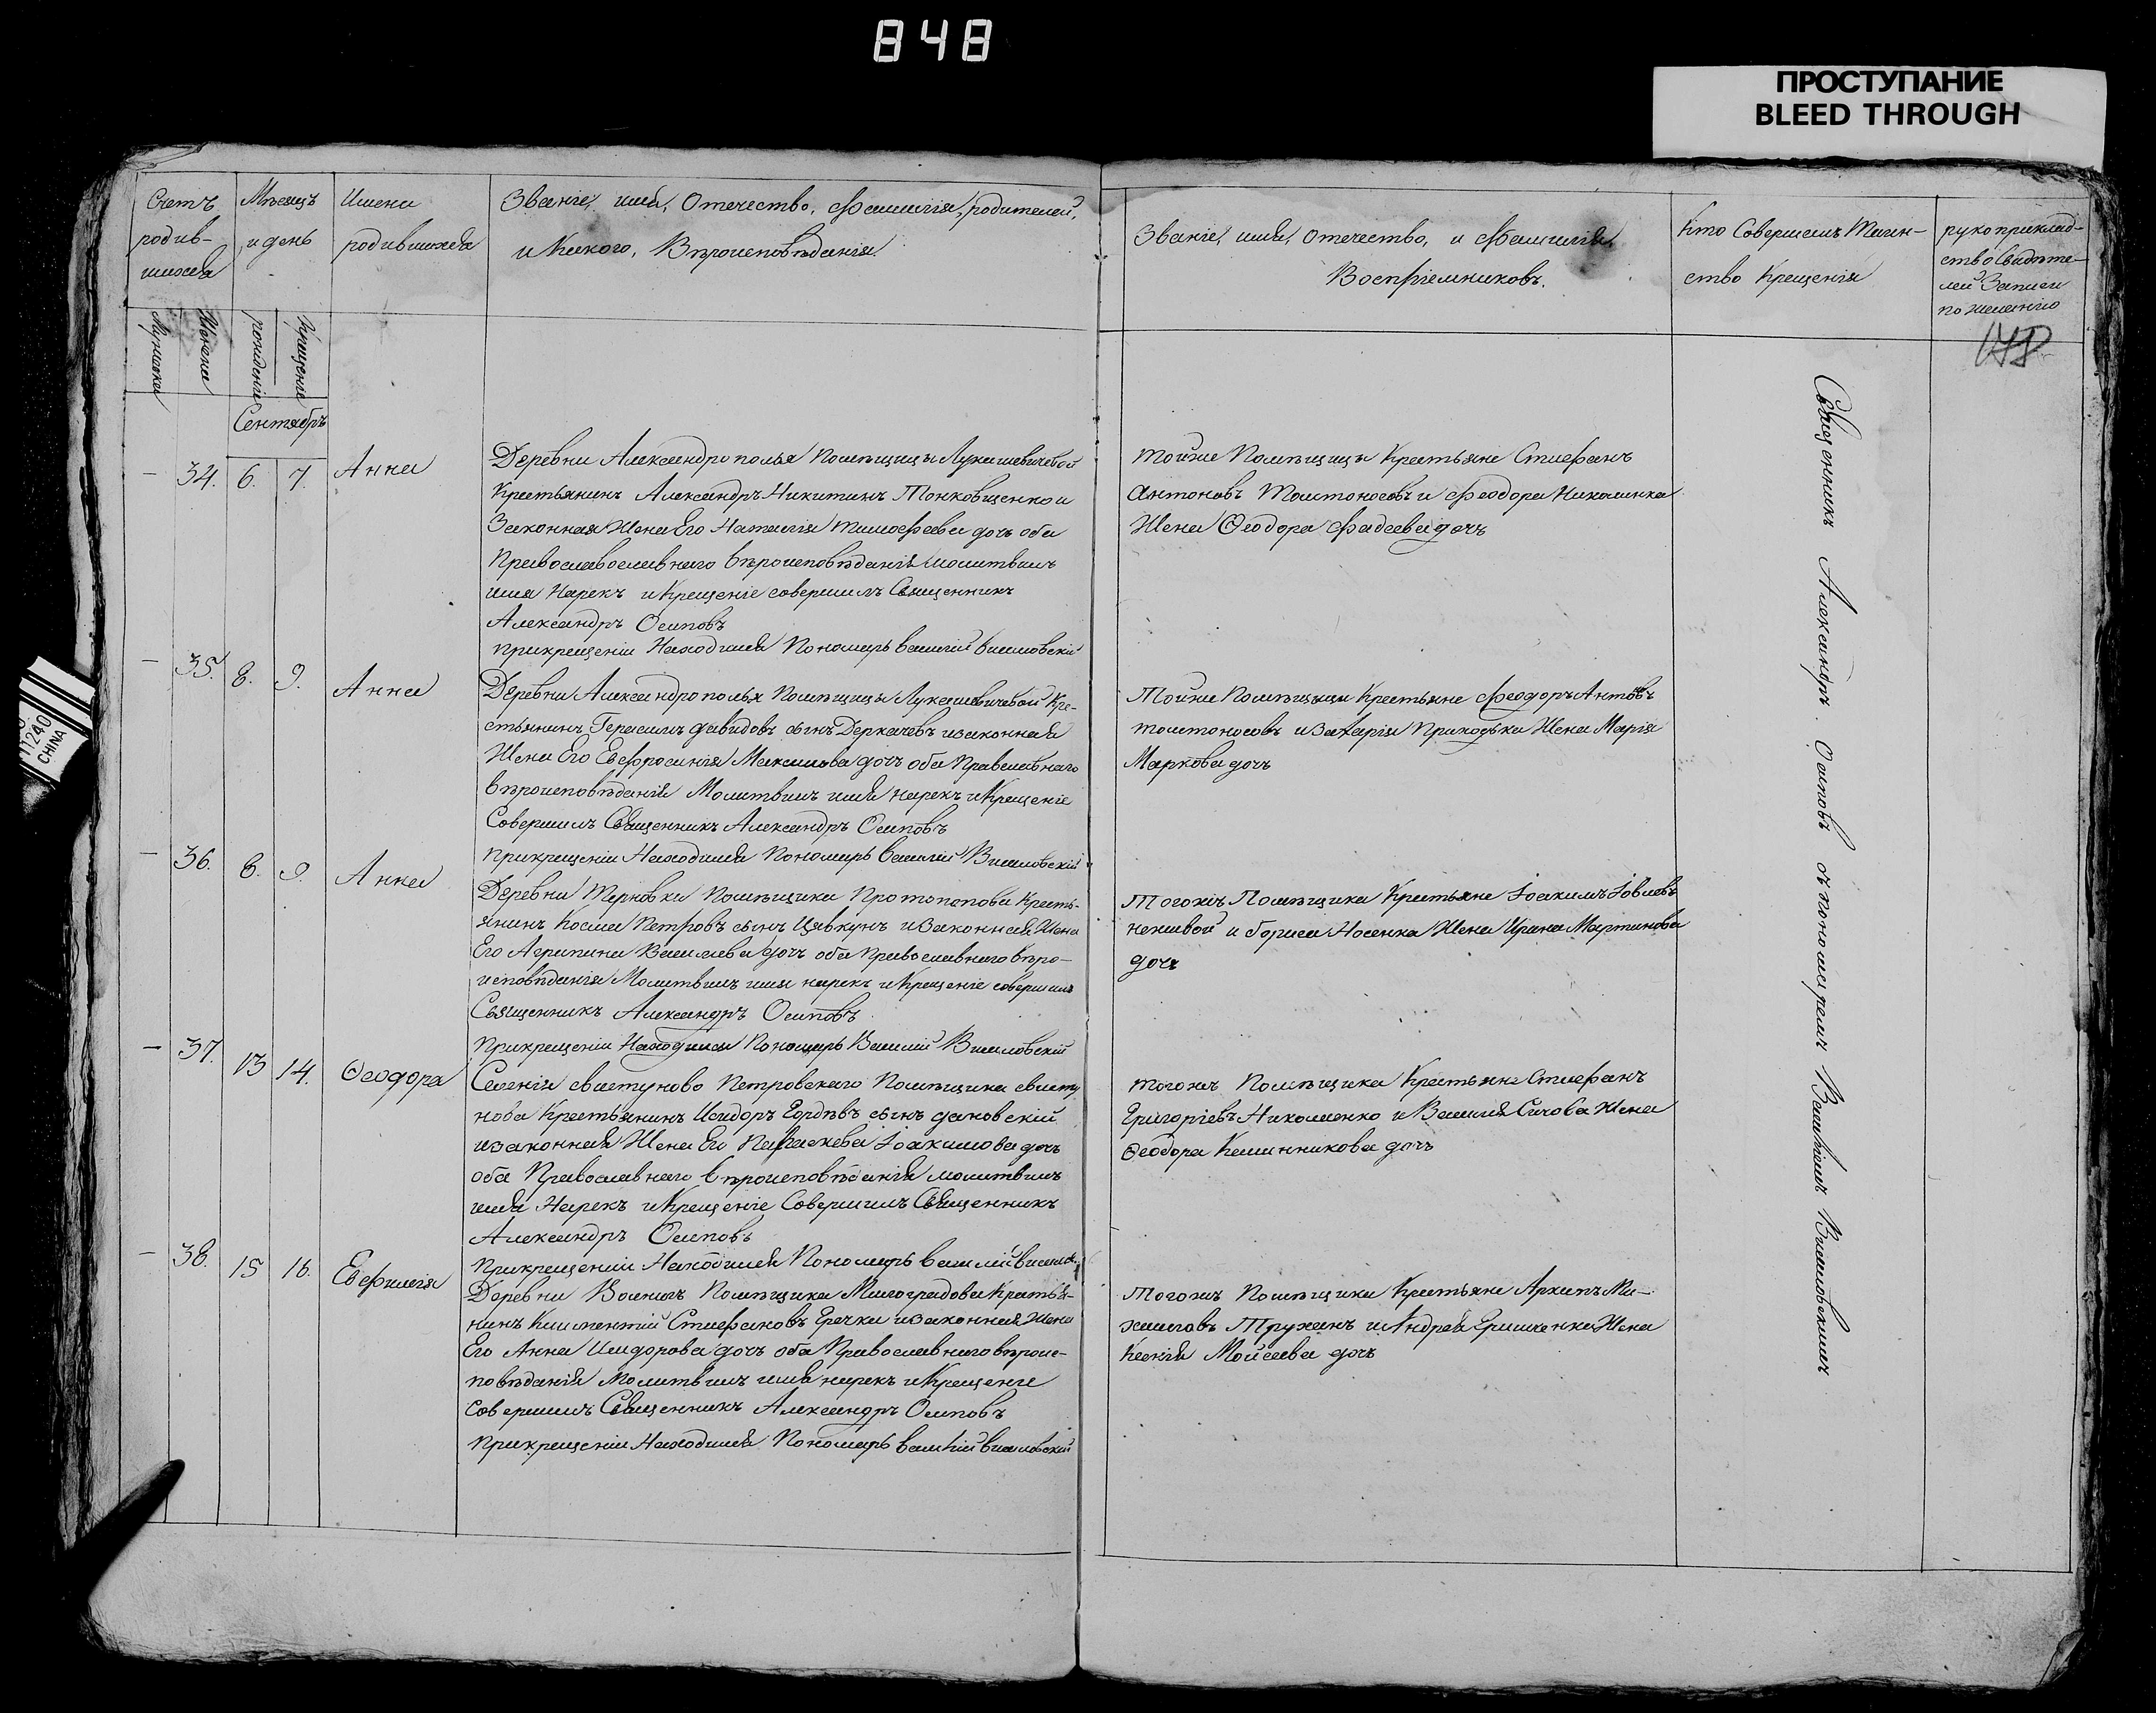 848
ПРОСТУПАНИЕ
BLEED THROUGH
11240
CHINA
Счетъ родив-шихся
Мѣсяцъ и день
Имена родившихся
Званіе, имя, Отечество, Фамилія, родителей,
и Какого, Вѣроисповѣданія.
Званіе, имя, отечество, и Фамилія
Воспріемниковъ.
Кто Совершалъ Таин-
ство Крещенія
рукоприклад-
ство Свидѣте-
лей Записи
по желанію
Мужеска
Женска
рожденіе
Крещеніе
Сентябрь
– 34. 6. 7. Анна
Деревни Александрополья Помѣщицы Лукашевичевой
Крестьянинъ Александръ Никитинъ и
Законная Жена Его Наталія Тимофеева дочь оба
Православославнаго вѣроисповѣданія молитвилъ
имя Нарекъ и Крещеніе совершилъ Священникъ
Александръ Осиповъ
прикрещеніи Находился Пономарь василій
тойже Помѣщицы Крестьяне Стефанъ
Антоновъ Толстоносовъ и Феодора Николенка
Жена Ѳеодора Фадеева дочь
– 35. 8. 9. Анна
Деревни Александрополья Помѣщицы Лукашевичевой Кре-
стьянинъ Герасимъ давидовъ сынъ Деркачевъ изаконная
Жена Его Евфросинія Максимова дочь оба Православнаго
вѣроисповѣданія Молитвилъ имя нарекъ и Крещеніе
Совершилъ Священникъ Александръ Осиповъ
прикрещеніи Находился Пономарь василій
Тойже Помѣщицы Крестьяне Феодоръ Антоновъ
толстоносовъ и Захарія Приходька Жена Марія
Маркова дочь
– 36. 8. 9. Анна
Деревни Терновки Помѣщика Протопопова Кресть-
янинъ Косма Петровъ сынъ Цявкунъ и Законная Жена
Его Агрипина Василева дочь оба Православнаго вѣро-
исповѣданія Молитвилъ имя нарекъ и Крещеніе совершилъ
Священникъ Александръ Осиповъ
Прикрещеніи Находился Пономарь Василій
Тогожъ Помѣщика Крестьяне Іоакимъ Іовлевъ
неживой и бориса Носенка Жена Ирина Мартинова
дочь
– 37. 13 14. Ѳеодора
Селенія свистуново Петровского Помѣщика свисту
нова Крестьянинъ Исидоръ Гордѣвъ сынъ
изаконная Жена Его Параскева Іоакимова дочь
оба Православнаго вѣроисповѣданія молитвилъ
имя Нарекъ и Крещеніе Совершилъ Священникъ
Александръ Осиповъ
Прикрещеніи Находился Пономарь василій
тогожъ Помѣщика Крестьяне Стефанъ
Григоріевъ Николаенко и Василія Сичова Жена
Ѳеодора дочь
– 38. 15 16. Евфимія
Деревни Помѣщика Милоградова Крестья-
нинъ Климентій Стефановъ Гречка изаконная Жена
Его Анна Исидорова дочь оба Православнаго вѣроис-
повѣданія Молитвилъ имя нарекъ и Крещеніе
совершилъ Священникъ Александръ Осиповъ
прикрещеніи Находился Пономарь василій
Тогожъ Помѣщика Крестьяне Архипъ Ми-
хаиловъ Труханъ и Андрея Гришченка Жена
Ксенія Мойсеева дочь
Священникъ Александръ Осиповъ съ пономаремъ Василіемъ